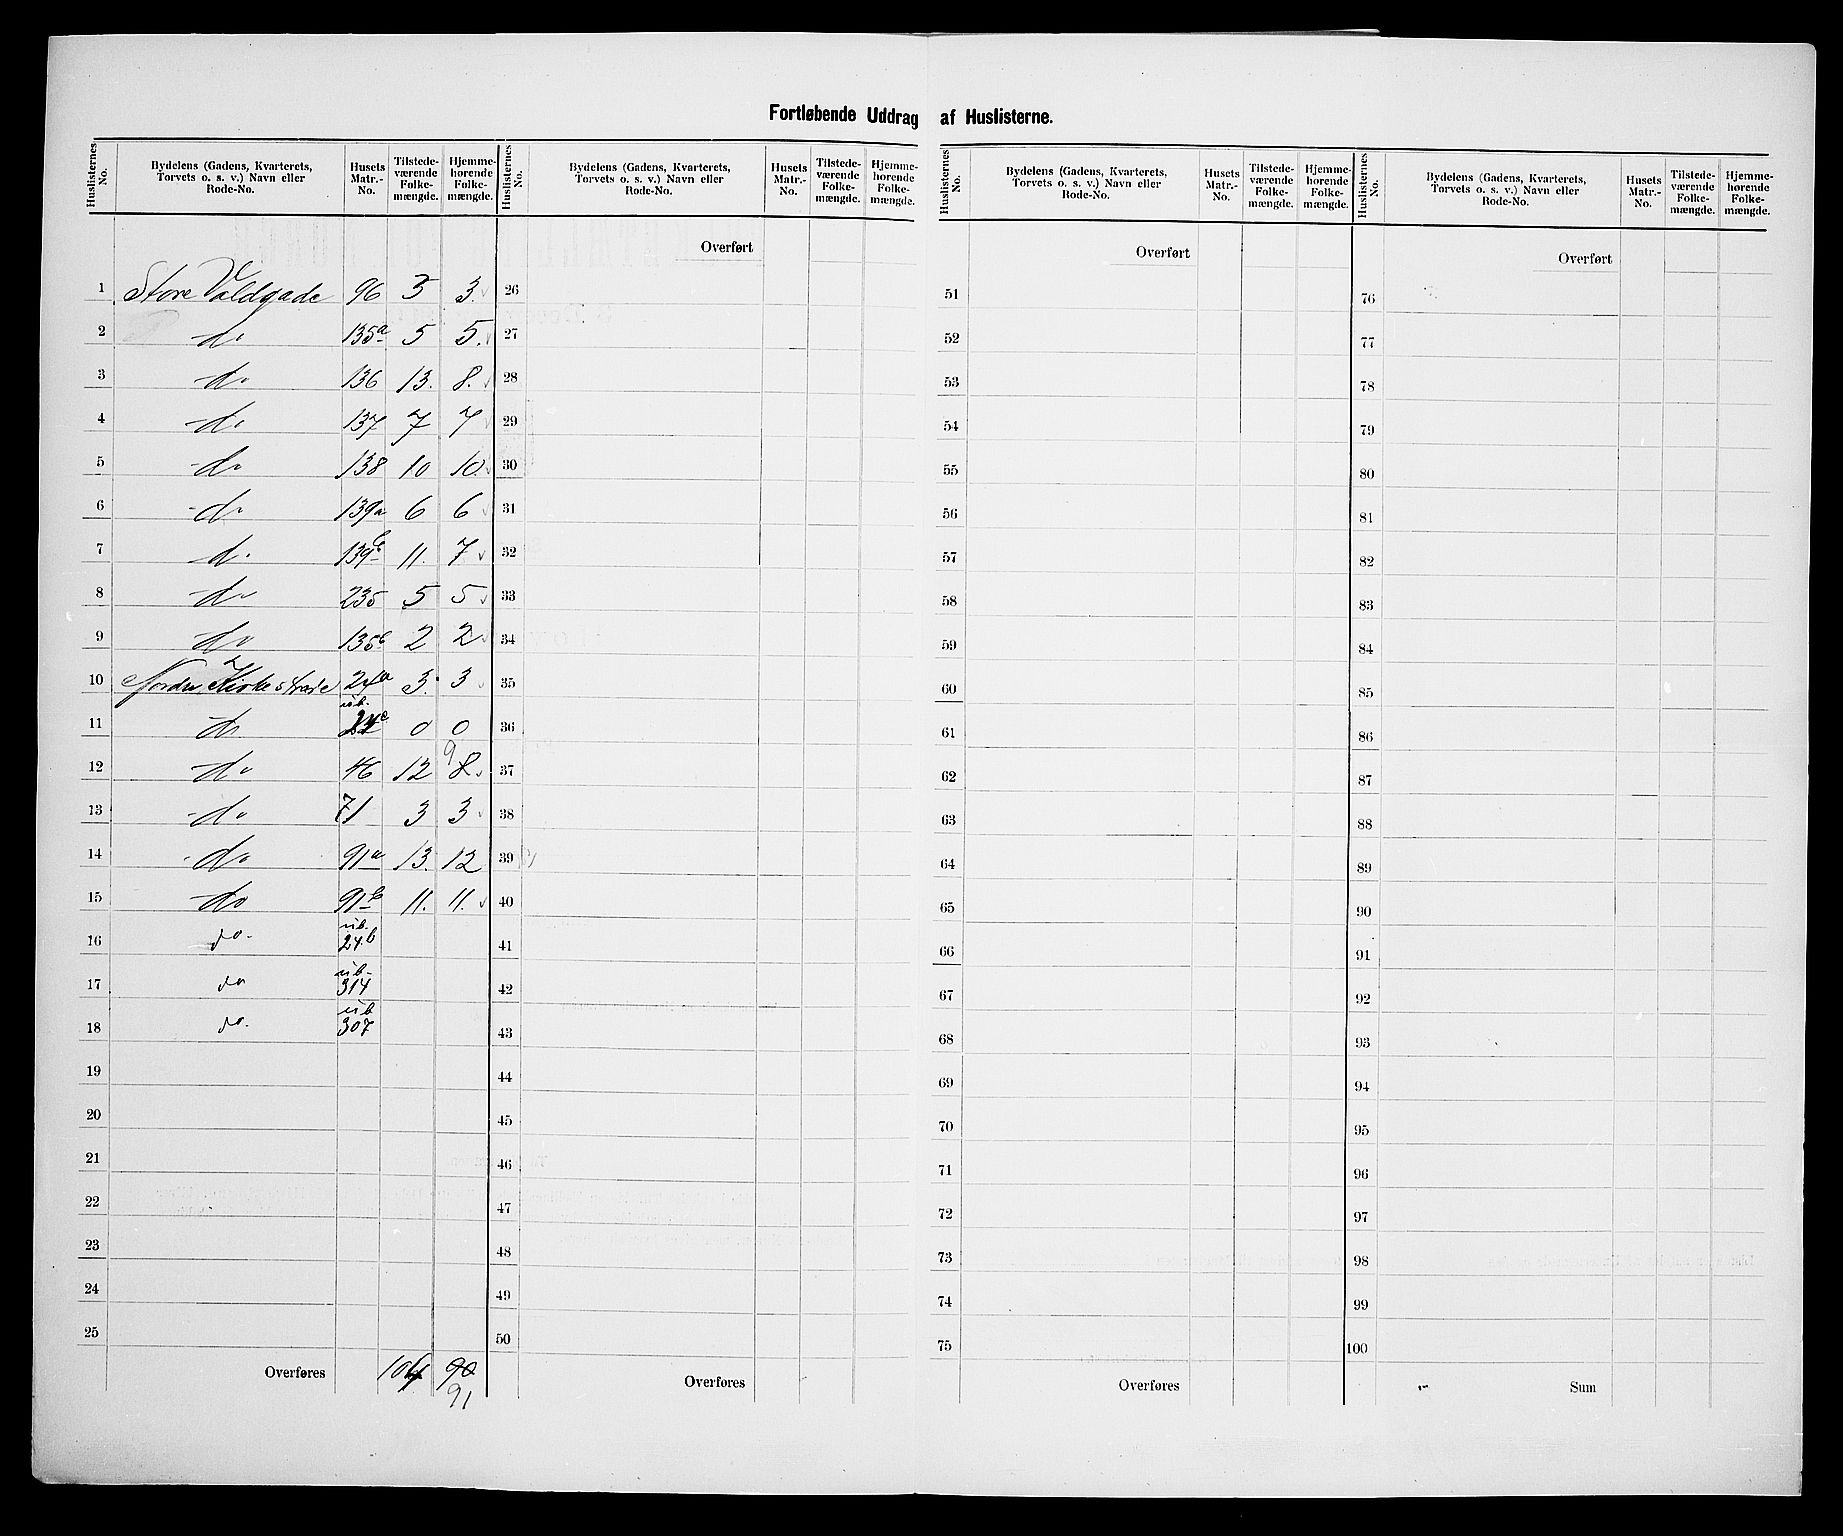 Fortløbende Uddrag af Huslisterne.
Huslisternes No. | Bydelens (Gadens, Kvarterets, Torvets o. s. v.) Navn eller Rode-No. | Husets Matr.-No. | Tilstedeværende Folkemængde. | Hjemmehørende Folkemængde.
1 Store Voldgade 96 3 3.
2 do 135a 5 5.
3 do 136 13. 8.
4 do 137 7 7
5 do 138 10 10
6 do 139a 6 6
7 do 139b 11. 7
8 do 235 5 5
9 do 135b 2 2
10 Nordre Kirkestræde 24a 3. 3
11 do ub. 24c 0 0
12 do 46 12 9 8
13 do 71 3 3
14 do 91a 13. 12
15 do 91b 11. 11.
16 do. ub. 24.b
17 do ub. 314
18 do. ub 307
19
20
21
22
23
24
25
Overføres 104 90
91
Huslisternes No. | Bydelens (Gadens, Kvarterets, Torvets o. s. v.) Navn eller Rode-No. | Husets Matr.-No. | Tilstedeværende Folkemængde. | Hjemmehørende Folkemængde.
Overført
26
27
28
29
30
31
32
33
34
35
36
37
38
39
40
41
42
43
44
45
46
47
48
49
50
Overføres
Huslisternes No. | Bydelens (Gadens, Kvarterets, Torvets o. s. v.) Navn eller Rode-No. | Husets Matr.-No. | Tilstedeværende Folkemængde. | Hjemmehørende Folkemængde.
Overført
51
52
53
54
55
56
57
58
59
60
61
62
63
64
65
66
67
68
69
70
71
72
73
74
75
Overføres
Huslisternes No. | Bydelens (Gadens, Kvarterets, Torvets o. s. v.) Navn eller Rode-No. | Husets Matr.-No. | Tilstedeværende Folkemængde. | Hjemmehørende Folkemængde.
Overført
76
77
78
79
80
81
82
83
84
85
86
87
88
89
90
91
92
93
94
95
96
97
98
99
100
Sum